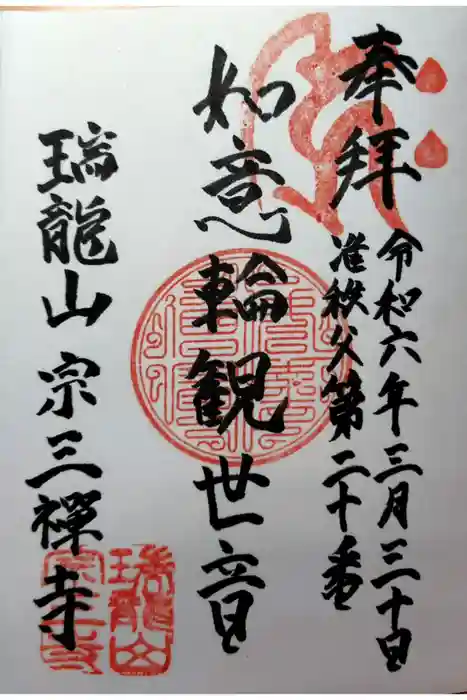 奉拝
令和六年三月三十日
准秩父第二十番
如意輪観世音
瑞龍山 宗三禅寺
瑞龍山
宗三寺